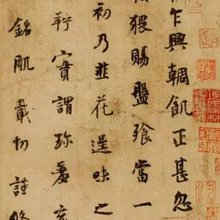 乍興輖飢正甚忽
猥賜盤飧當一
初乃韭花逞味之
羜實謂珍羞充
銘肌載切謹修